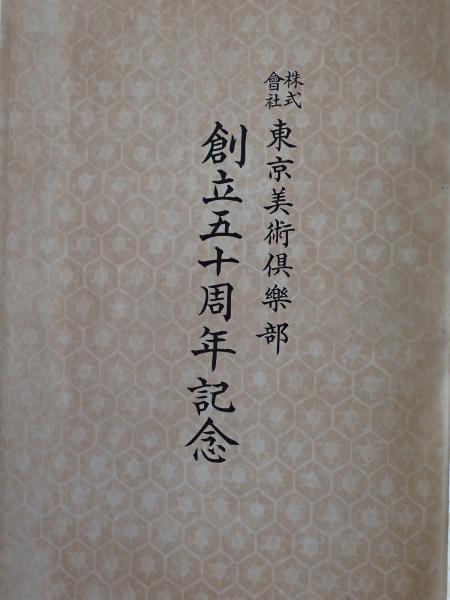 株式會社東京美術倶樂部
創立五十周年記念